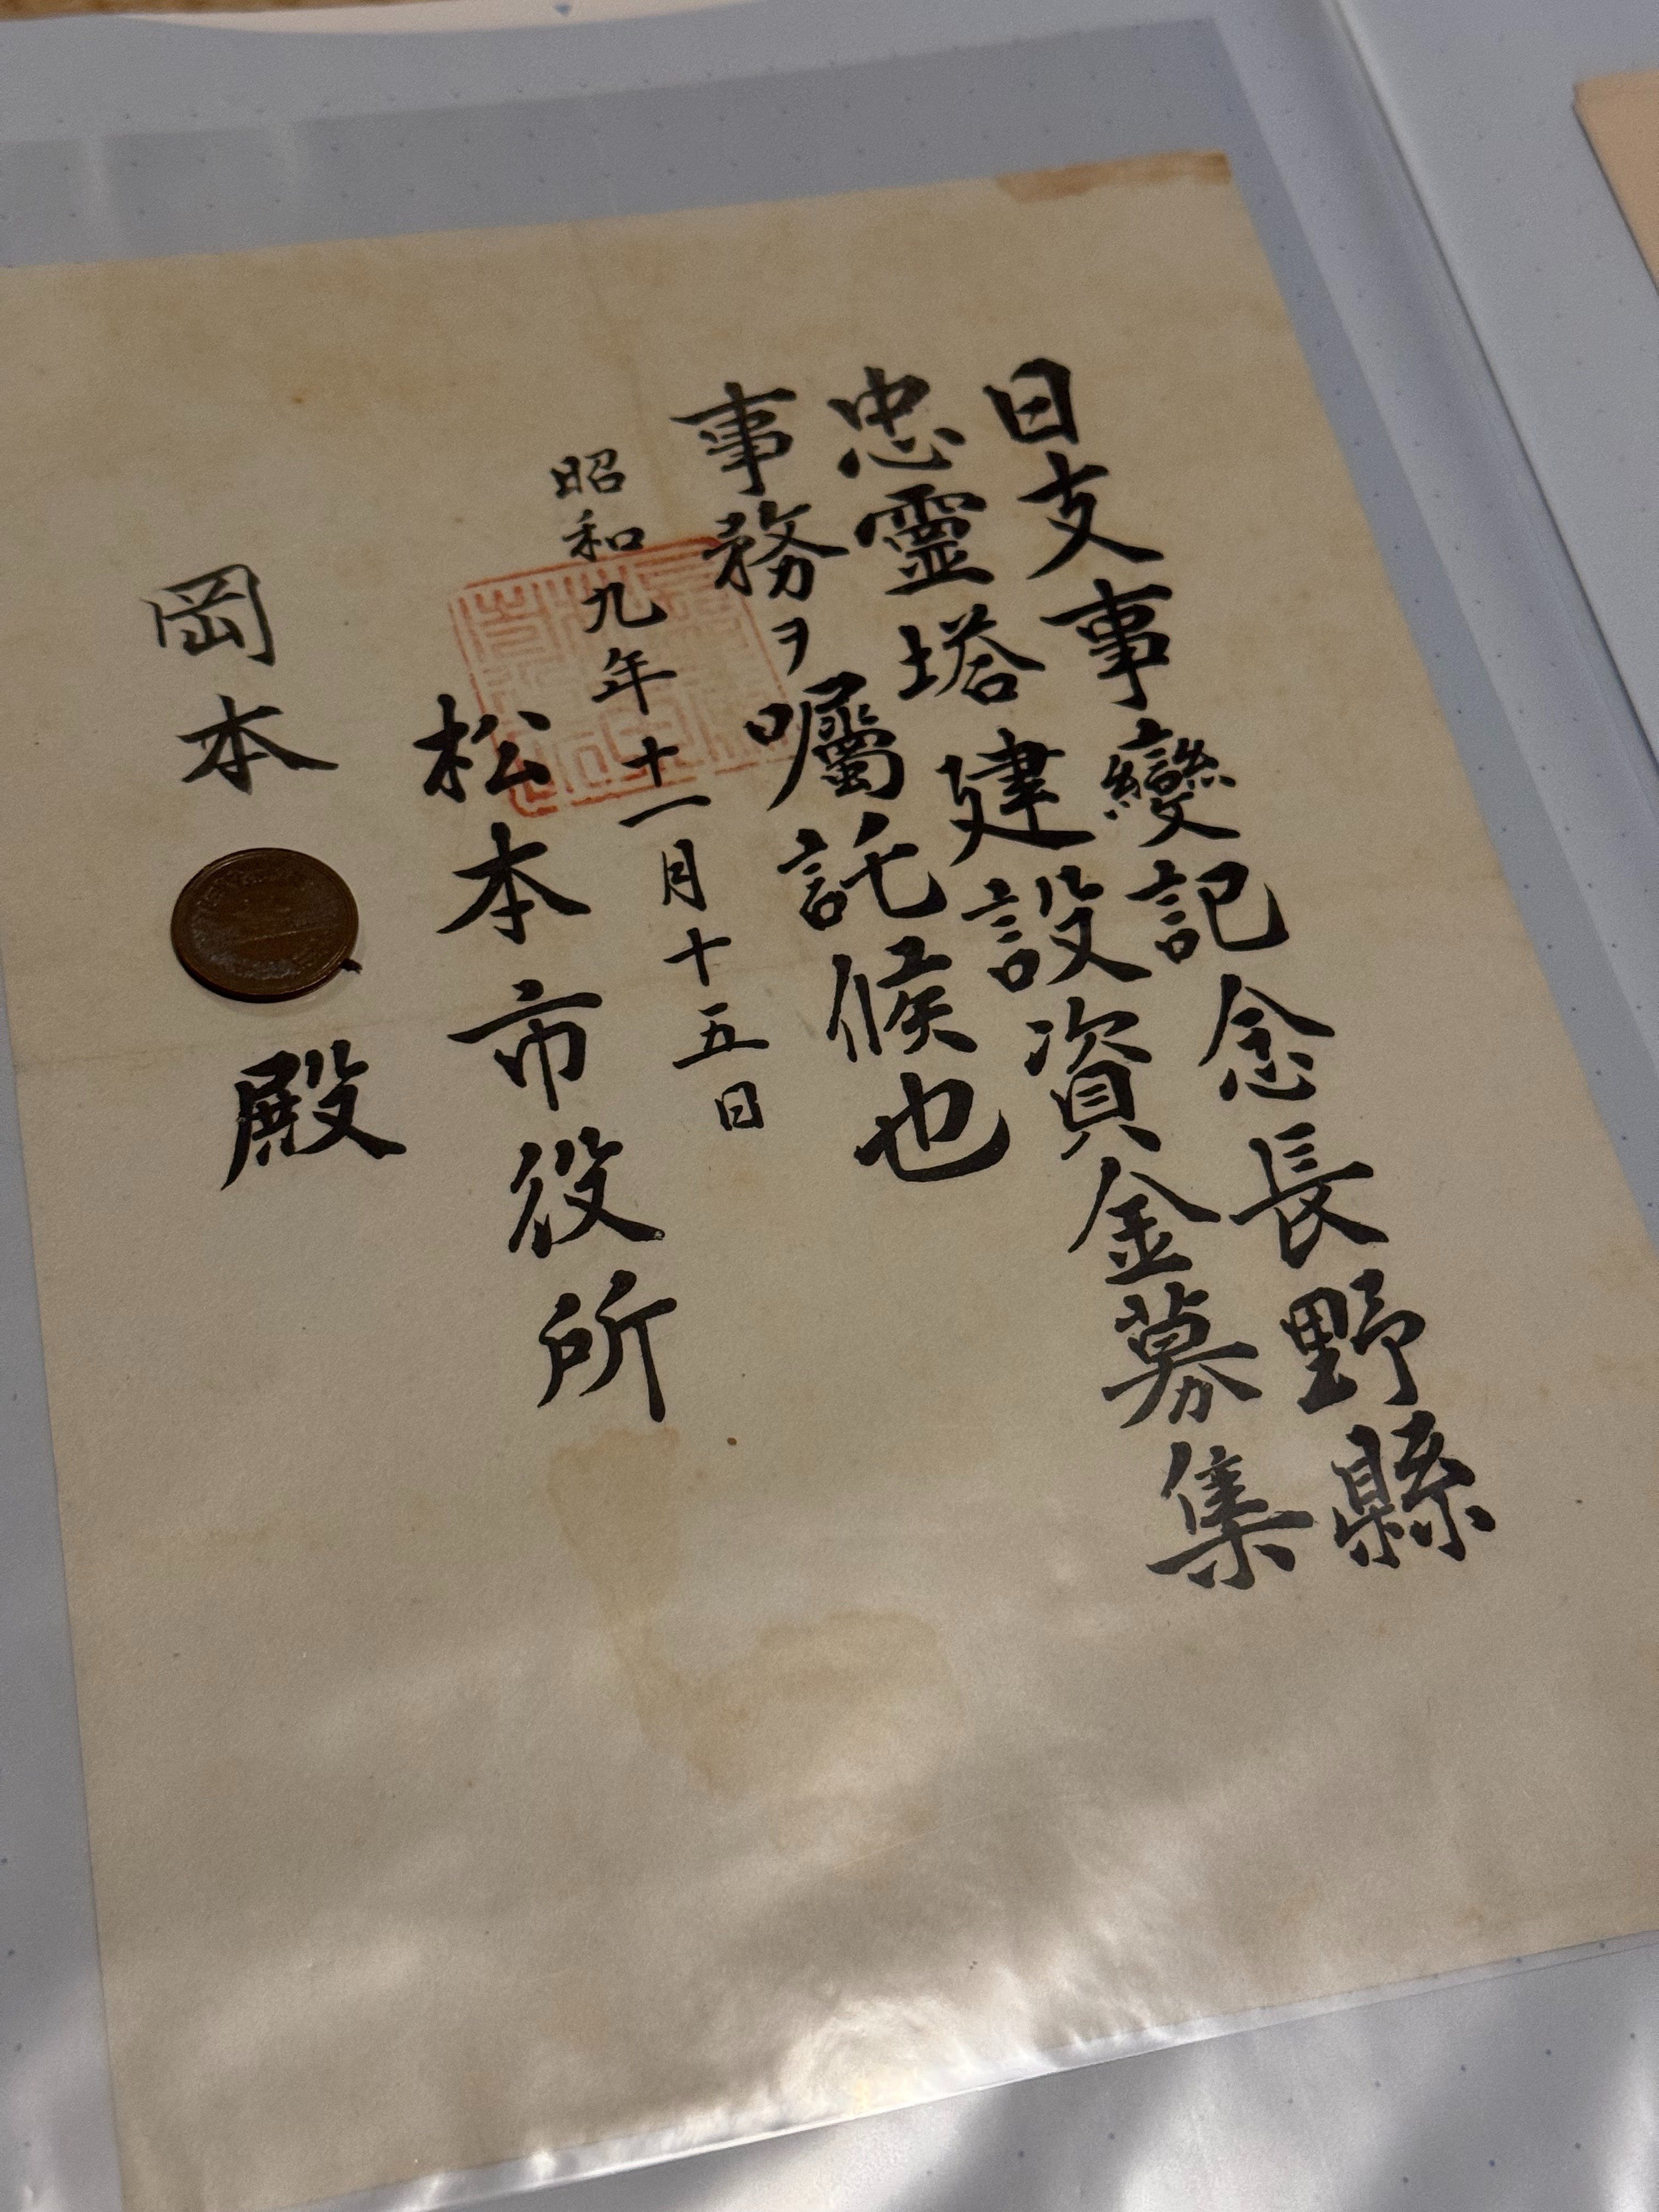 日支事變記念長野縣
忠靈塔建設資金募集
事務ヲ囑託候也
昭和九年十一月十五日
松本市役所
岡本
殿